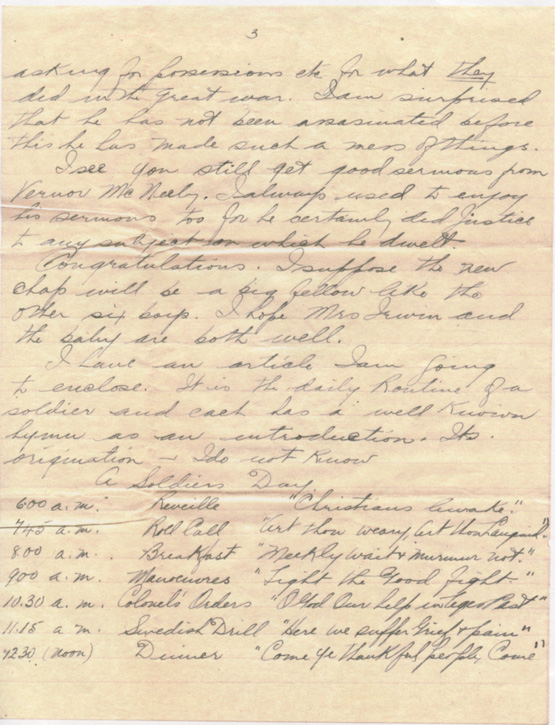 3
asking for possessions etc for what they
did in the Great war. I am surprised
that he has not been assasinated before
this he has made such a mess of things.
I see you still get good sermons from
Vernor McNeely. I always used to enjoy
his sermons too for he certainly did justice
to any subject on which he dwelt.
Congratulations. I suppose the new
chap will be a big fellow like the
other six boys. I hope Mrs Irwin and
the baby are both well.
I have an article I am going
to enclose. It is the daily Routine of a
soldier and each has a well known
hymn as an introduction. Its
origination - I do not know
A Soldiers Day.
6.00 a.m. Reveille "Christians Awake."
7.45 a.m. Roll Call "Art thou weary, art thou languid."
8.00 a.m. Breakfast "Meekly wait & murmur not."
9.00 a.m. Manoeuvres "Fight the Good fight."
10.30 a.m. Colonel's Orders "O God Our help in ages Past"
11.15 a m. Swedish Drill "Here we suffer Grief & pain"
12.30 (noon) Dinner "Come Ye thankful people, Come"